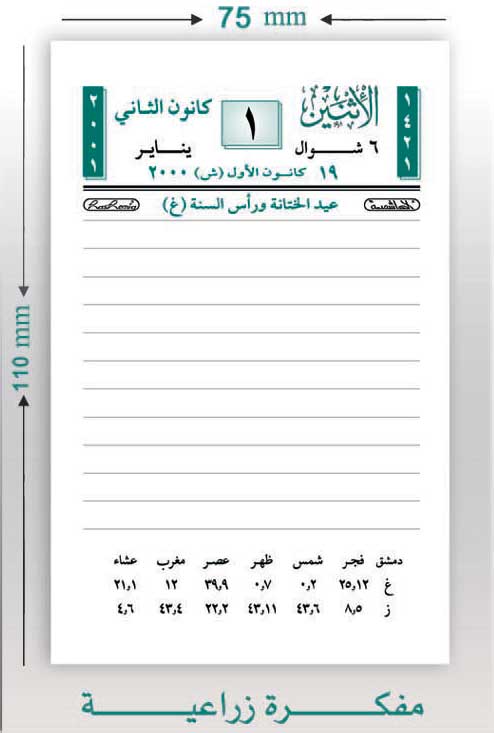 75 mm
110 mm
١٤٢١
الأثنين
١
كانون الثاني
٢٠٠١
٦ شـــوال
ينـــاير
١٩ كانون الأول (ش) ٢٠٠٠
الهاشمية
عيد الختانة ورأس السنة (غ)
دمشق فجر شمس ظهر عصر مغرب عشاء
غ ٢٥,١٢ ٠,٢ ٠,٧ ٣٩,٩ ١٢ ٢١,١
ز ٨,٥ ٤٣,٦ ٤٣,١١ ٢٢,٢ ٤٣,٤ ٤,٦
مفكـــرة زراعيـــة